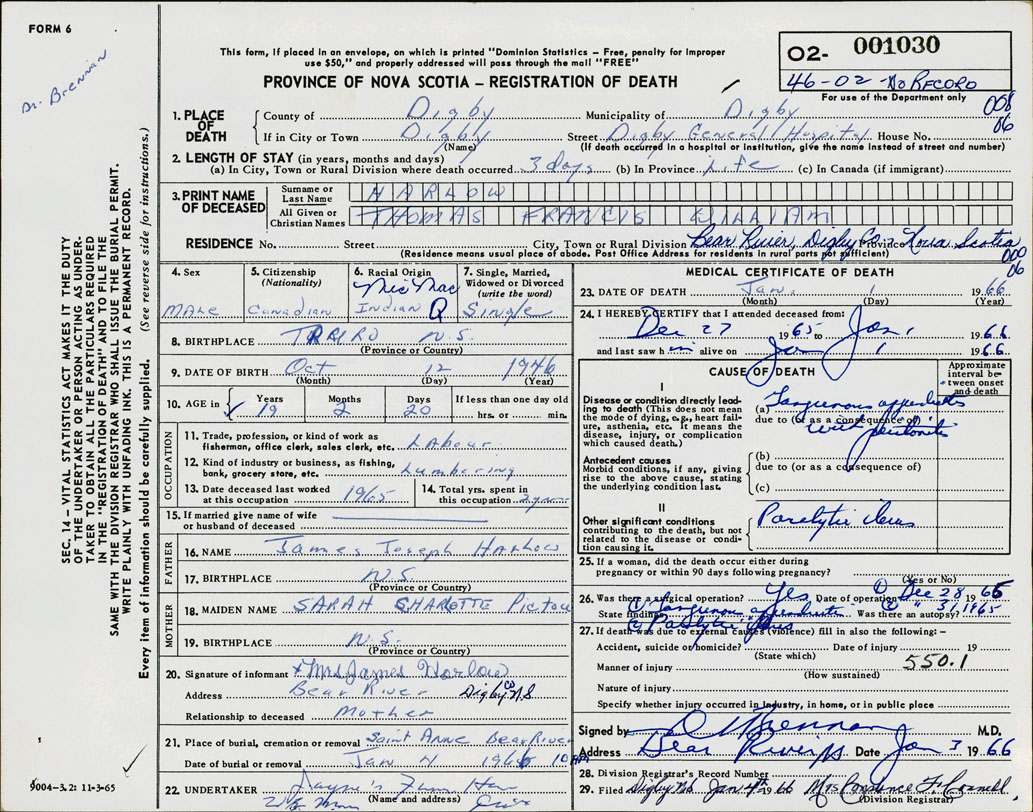 FORM 6
Dr. Brennan
This form, if placed in an envelope, on which is printed "Dominion Statistics – Free, penalty for improper
use $50," and properly addressed will pass through the mail "FREE"
PROVINCE OF NOVA SCOTIA – REGISTRATION OF DEATH
O2- 001030
46-02 - No RECORD
For use of the Department only
008
06
1. PLACE OF DEATH
County of Digby Municipality of Digby
If in City or Town Digby Street Digby General Hospital House No.
(Name) (If death occurred in a hospital or institution, give the name instead of street and number)
2. LENGTH OF STAY (in years, months and days)
(a) In City, Town or Rural Division where death occurred 3 days (b) In Province Life (c) In Canada (if immigrant)
3. PRINT NAME OF DECEASED
Surname or Last Name HARLOW
All Given or Christian Names THOMAS FRANCIS WILLIAM
RESIDENCE No. Street City, Town or Rural Division Bear River, Digby Co. Province Nova Scotia
(Residence means usual place of abode. Post Office Address for residents in rural parts not sufficient)
000
06
4. Sex MALE
5. Citizenship (Nationality) Canadian
6. Racial Origin Mic Mac Indian
7. Single, Married, Widowed or Divorced (write the word) Single
8. BIRTHPLACE TRURO N.S.
(Province or Country)
9. DATE OF BIRTH Oct 12 1946
(Month) (Day) (Year)
10. AGE in Years 19 Months 2 Days 20 If less than one day old hrs. or min.
OCCUPATION
11. Trade, profession, or kind of work as
fisherman, office clerk, sales clerk, etc. Labour
12. Kind of industry or business, as fishing,
bank, grocery store, etc. Lumbering
13. Date deceased last worked
at this occupation 1965
14. Total yrs. spent in
this occupation 2 years
15. If married give name of wife
or husband of deceased
FATHER
16. NAME James Joseph Harlow
17. BIRTHPLACE N.S.
(Province or Country)
MOTHER
18. MAIDEN NAME SARAH CHARLOTTE Pictou
19. BIRTHPLACE N.S.
(Province or Country)
20. Signature of informant x Mrs James Harlow
Address Bear River Digby Co N.S
Relationship to deceased Mother
21. Place of burial, cremation or removal Saint Anne Bear River
Date of burial or removal Jan 4 1966 10 AM
22. UNDERTAKER
(Name and address)
MEDICAL CERTIFICATE OF DEATH
23. DATE OF DEATH Jan. 1 1966
(Month) (Day) (Year)
24. I HEREBY CERTIFY that I attended deceased from:
Dec 27 1965 to Jan 1 1966
and last saw him alive on Jan 1 1966
CAUSE OF DEATH
Approximate interval between onset and death
I
Disease or condition directly lead-
ing to death (This does not mean
the mode of dying, e.g., heart fail-
ure, asthenia, etc. It means the
disease, injury, or complication
which caused death.)
(a) Gangrenous appendicitis
due to (or as a consequence of)
with peritonitis
Antecedent causes
Morbid conditions, if any, giving
rise to the above cause, stating
the underlying condition last.
(b)
due to (or as a consequence of)
(c)
II
Other significant conditions
contributing to the death, but not
related to the disease or condi-
tion causing it.
Paralytic ileus
25. If a woman, did the death occur either during
pregnancy or within 90 days following pregnancy?
(Yes or No)
26. Was there a surgical operation? Yes Date of operation ① Dec 28 1965
State findings ① Gangrenous appendicitis Was there an autopsy? ② " 31/1965
② Paralytic ileus
27. If death was due to external causes (violence) fill in also the following: –
Accident, suicide or homicide? Date of injury 19
(State which)
Manner of injury 550.1
(How sustained)
Nature of injury
Specify whether injury occurred in industry, in home, or in public place
Signed by Brennan M.D.
Address Bear River NS Date Jan 3 1966
28. Division Registrar's Record Number
29. Filed Digby N.S. Jan 4th 1966 Mrs Constance F.
(Division Registrar)
SEC. 14 – VITAL STATISTICS ACT MAKES IT THE DUTY
OF THE UNDERTAKER OR PERSON ACTING AS UNDER-
TAKER TO OBTAIN ALL THE PARTICULARS REQUIRED
IN THE "REGISTRATION OF DEATH" AND TO FILE THE
SAME WITH THE DIVISION REGISTRAR WHO SHALL ISSUE THE BURIAL PERMIT.
WRITE PLAINLY WITH UNFADING INK. THIS IS A PERMANENT RECORD.
Every item of information should be carefully supplied. (See reverse side for instructions.)
1
9004-3.2: 11-3-65